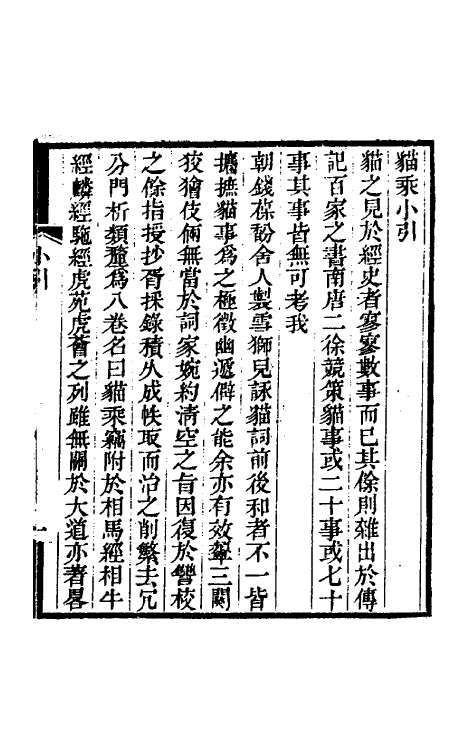 貓乘小引
貓之見於經史者寥寥數事而已其餘則雜出於傳
記百家之書南唐二徐競策貓事或二十事或七十
事其事皆無可考我
朝錢葆馚舍人製雪獅兒詠貓詞前後和者不一皆
攟摭貓事爲之極徵幽遞僻之能余亦有效顰三闋
狡獪伎倆無當於詞家婉約淸空之旨因復於讐校
之餘指授抄胥採錄積久成帙取而治之削繁去冗
分門析類釐爲八卷名曰貓乘竊附於相馬經相牛
經麟經駝經虎苑虎薈之列雖無關於大道亦著畧
小引
一